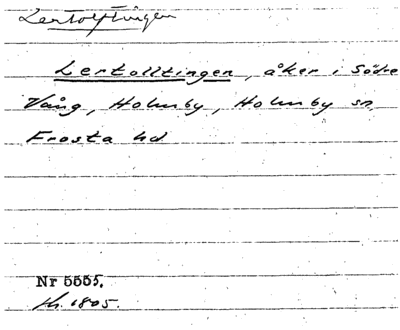 Lertolftingen
Lertolltingen, åker i Södra
Vång, Holmby, Holmby sn,
Frosta hd
Nr 5555.
Kh. 1805.